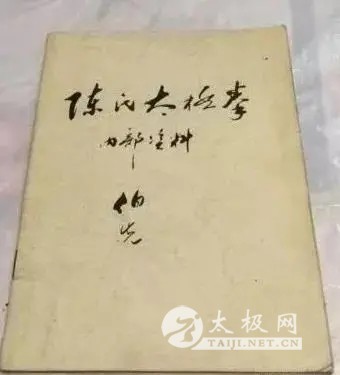 陈氏太极拳
内部资料
伯
太极网
TAIJI.NET.CN